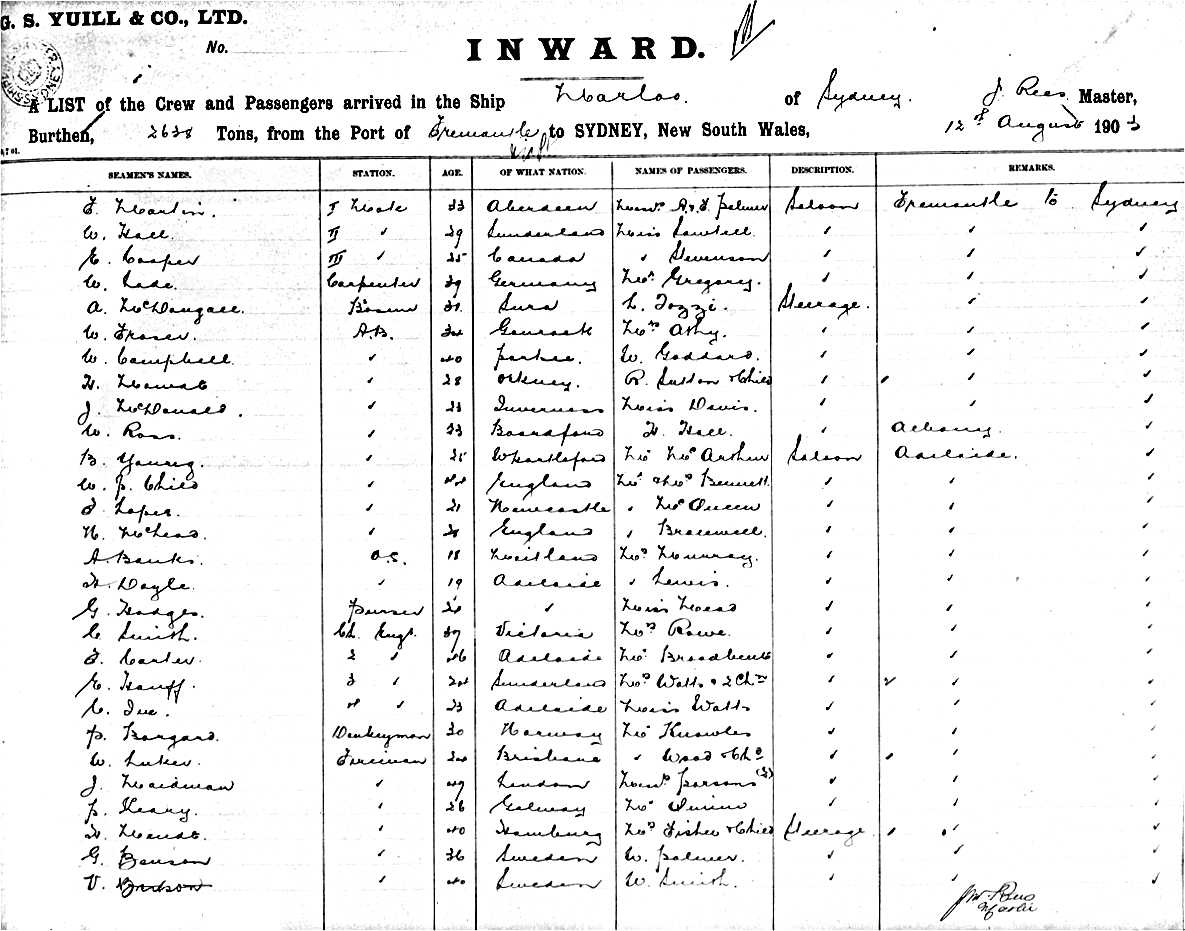 G. S. YUILL & CO., LTD.
No.
INWARD.
A LIST of the Crew and Passengers arrived in the Ship Marloo. of Sydney. J. Rees Master,
Burthen, 2628 Tons, from the Port of Fremantle to SYDNEY, New South Wales, 12th August 1903
SEAMEN'S NAMES. STATION. AGE. OF WHAT NATION. NAMES OF PASSENGERS. DESCRIPTION. REMARKS.
F. Martin. I Mate 33 Aberdeen Messrs A. & F. Palmer Saloon Fremantle to Sydney
W. Hall. II " 29 Sunderland Miss Sawtell " " "
E. Cooper III " 25 Canada " Stevenson " " "
W. Lade. Carpenter 39 Germany Mrs Gregory. " " "
A. McDougall. Bosun 31 C. Tozzi. Steerage. " "
W. Fraser. A.B. 34 Gourock Mrs Athy. " " "
W. Campbell. " 40 W. Goddard. " " "
" 28 Orkney. R. Sutton & Child " " "
J. McDonald. " 23 Inverness Miss Davis. " " "
W. Ross. " 23 H. Hall. " Albany. "
B. Young. " 25 Mr McArthur Saloon Adelaide. "
W. P. Child " 44 England Mr & Mrs Bennett " " "
" 21 Newcastle " McQueen " " "
N. McLeod. " England " Bracewell. " " "
A. Banks. O.S. 18 Maitland Mrs Murray. " " "
H. Doyle. " 19 Adelaide " Lewis. " " "
G. Hodges. Purser 26 " Miss Mead " " "
C. Smith. Ch. Engr. 37 Victoria Mrs Rowe. " " "
F. Carter. 2 " 26 Adelaide Mr Broadbent " " "
E. Hauff. 3 " 24 Sunderland Mrs Watts & 2 Chn " 2 " "
4 " 23 Adelaide Miss Watts " " "
P. Borgard. Donkeyman 30 Norway Mr Knowles " " "
W. Luker. Fireman 34 Brisbane " Wood & Chd " " "
J. Maidman " 49 London Messrs Parsons (2) " " "
P. Heary. " 26 Galway Mr Quinn " " "
" 40 Hamburg Mrs Fisher & Child Steerage " "
G. Benson " 36 Sweden W. Palmer. " " "
V. " 40 Sweden W. Smith. " " "
J. W. Rees
Master